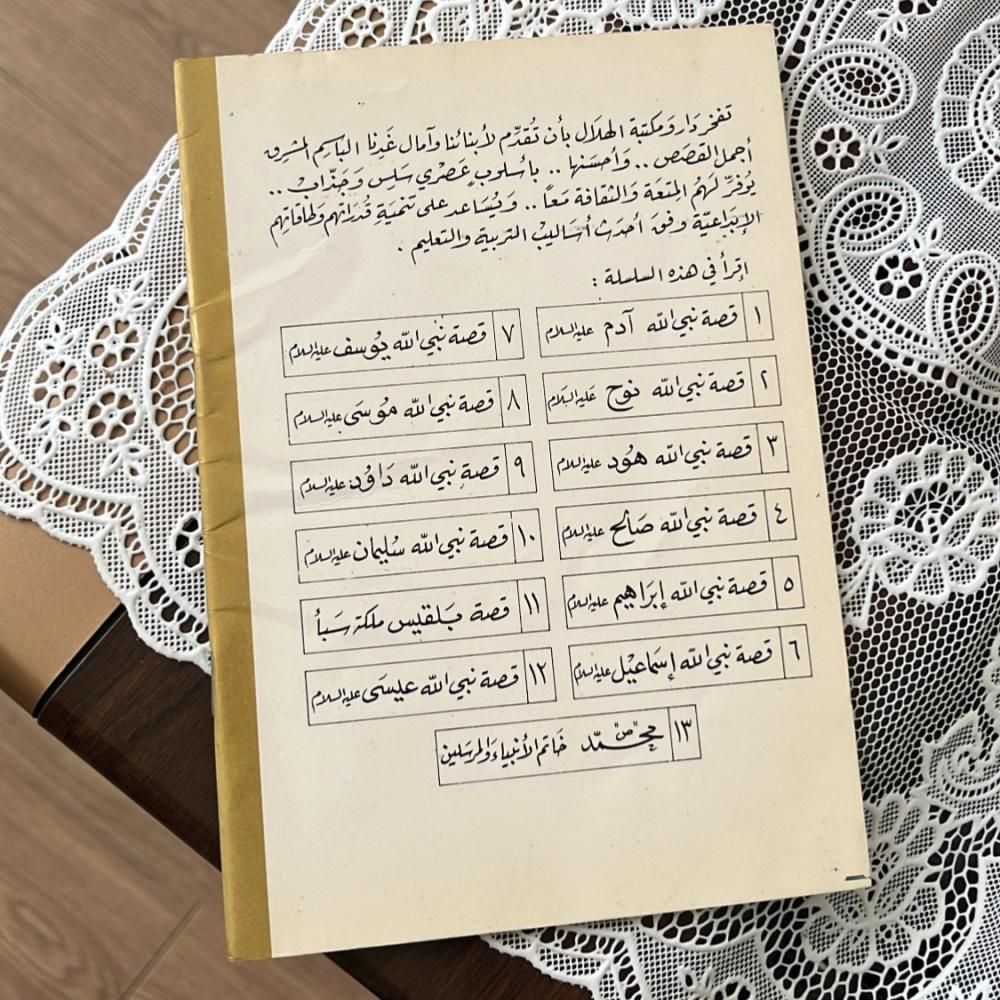 تفخر دَار وَمكتبة الهلَال بأن تُقدِّم لأبنائنا وآمال غَدِنا البَاسِم المشرق
أجمل القصَص .. وَأحسَنها .. بأسلوبٍ عَصْري سَلِس وَجَذّاب ..
يُوفرّ لَهُمُ المِتعَة وَالثقافة مَعاً .. وَيُسَاعد على تنميَةِ قُدرَاتهم وَطاقاتِهم
الإبدَاعيّة وفقَ أحدَث أسَاليبْ التربيةِ والتعليم .
إقرأ في هذه السلسلة :
١ قصة نبي الله آدم عليه السلام
٢ قصة نبي الله نوح عَليه السَلام
٣ قصة نبي الله هُود عليه السلام
٤ قصة نبي الله صَالح عليه السلام
٥ قصة نبي الله إبرَاهيم عليه السلام
٦ قصة نبي الله إسمَاعيْل عليه السلام
٧ قصة نبي الله يوُسف عليه السلام
٨ قصة نبي الله موُسَى عليه السلام
٩ قصة نبي الله دَاوُد عليه السلام
١٠ قصة نبي الله سُليمان عليه السلام
١١ قصة بَلقيس ملكة سَبأ
١٢ قصة نبي الله عليسَى عليه السلام
١٣ محمّد "ص" خَاتم الأنبيَاء وَالمرسَلين